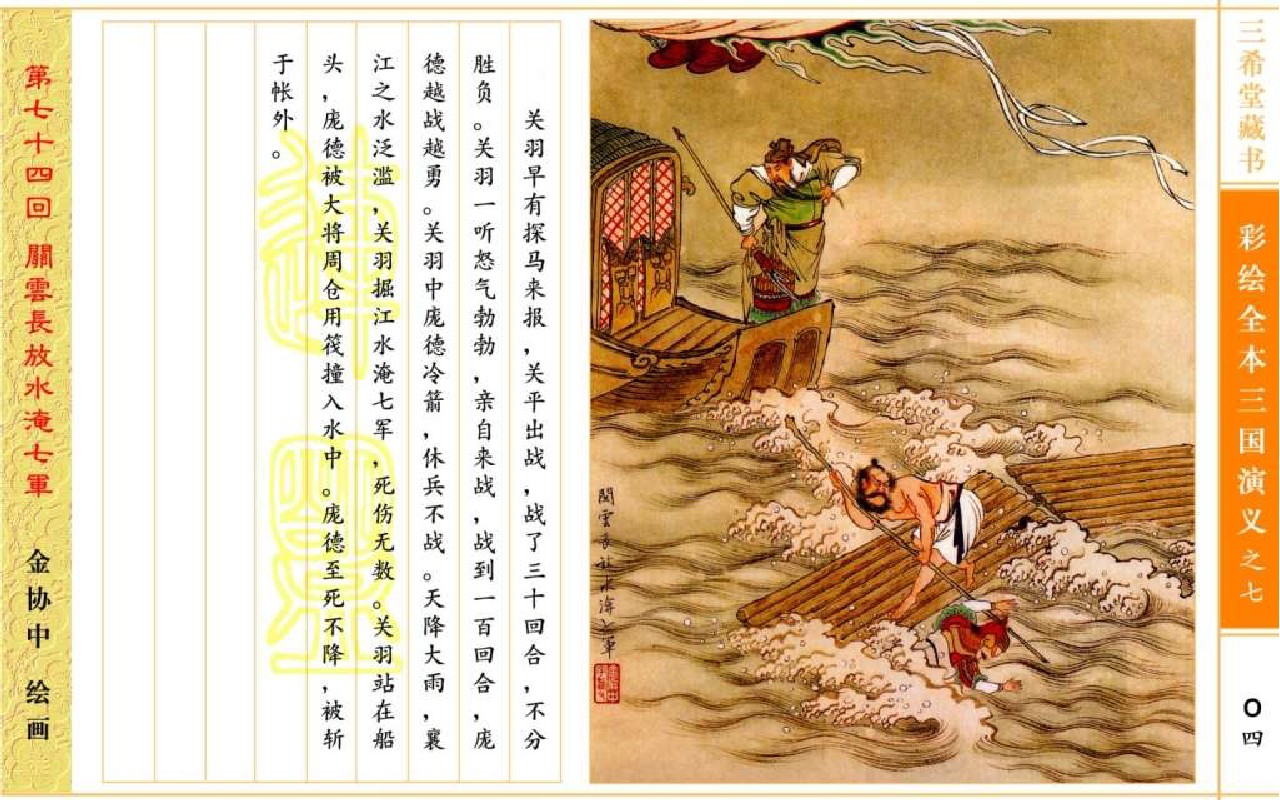 三希堂藏书
彩绘全本三国演义之七
〇四
關雲長放水淹七軍
关羽早有探马来报，关平出战，战了三十回合，不分
胜负。关羽一听怒气勃勃，亲自来战，战到一百回合，庞
德越战越勇。关羽中庞德冷箭，休兵不战。天降大雨，襄
江之水泛滥，关羽掘江水淹七军，死伤无数。关羽站在船
头，庞德被大将周仓用筏撞入水中。庞德至死不降，被斩
于帐外。
第七十四回 關雲長放水淹七軍 金协中 绘画